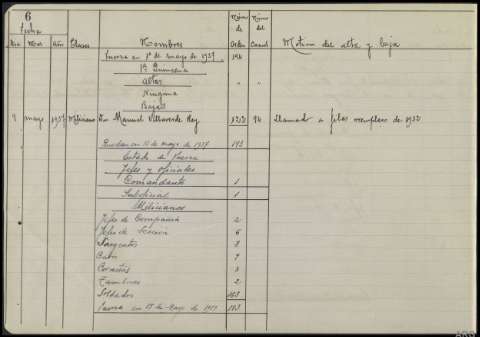 6
Fecha
Dia Mes Año Clases Nombres Número de Orden Número del Carnet Motivo del alta y baja
Fuerza en 1º de mayo de 1937 194
1ª Quincena
Altas " "
Ninguna
Bajas
mayo 1937 Miliciano Don Manuel Villaverde Rey 94 Llamado a filas reemplazo de 1932
Quedan en 15 de mayo de 1937 193
Estado de fuerza
Jefes y oficiales
Comandante 1
1
Milicianos
Jefes de Compañia 2
Jefes de Sección 6
Sargentos 8
Cabos 9
Cornetas 3
Tambores 2
Soldados 163
Fuerza en 15 de Mayo de 1937 193